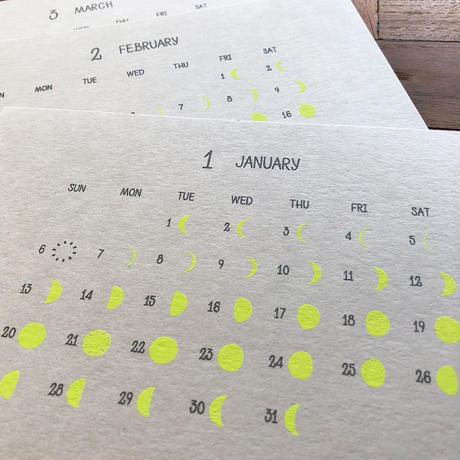 3 MARCH
THU FRI SAT
2 FEBRUARY
MON TUE WED THU FRI SAT
1 2
7 8 9
16
1 JANUARY
SUN MON TUE WED THU FRI SAT
1 2 3 4 5
6 7 8 9 10 11 12
13 14 15 16 17 18 19
20 21 22 23 24 25 26
28 29 30 31